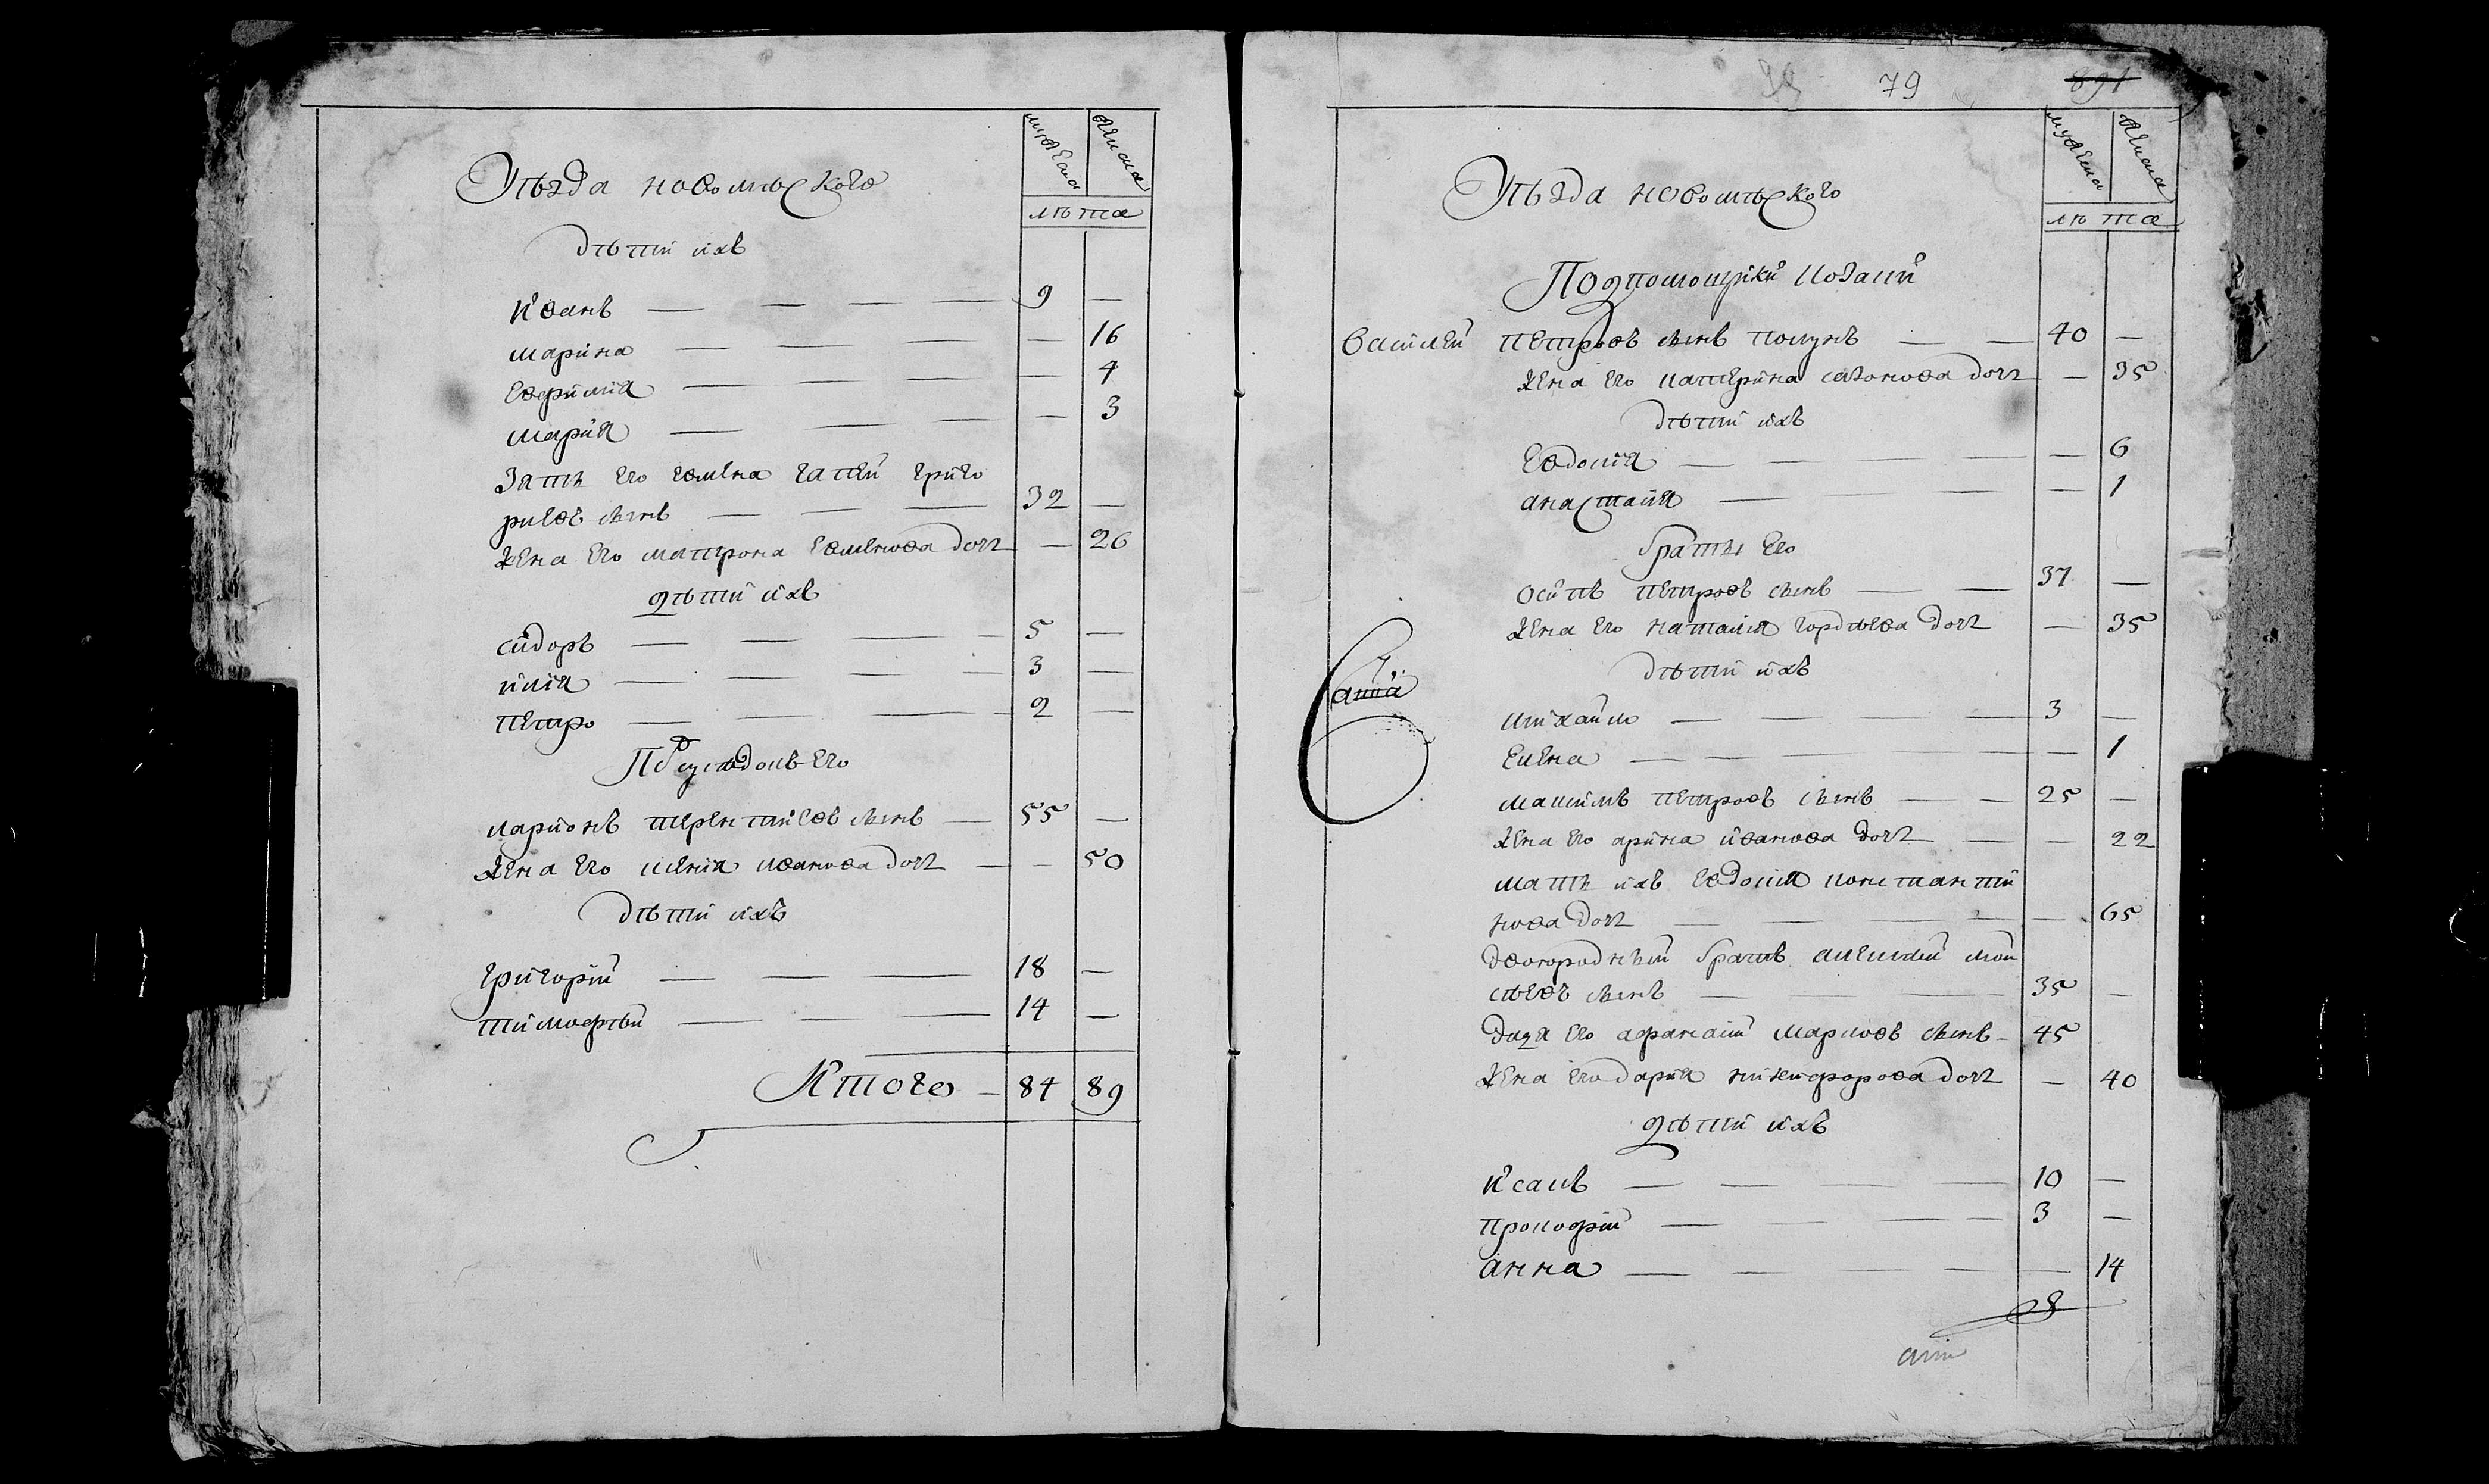 мужеска женска
Уѣзда новомлѣского
лѣта
дѣти ихъ
иванъ — — — — 9 —
марина — — — — — 16
евфимия — — — — 4
мария — — — — 3
зятъ его евмена гапѣй григо
риевъ сынъ — — — 32 —
жена его матрона евменова доч — 26
дѣти ихъ
сидоръ — — — — 5 —
илия — — — — 3 —
петро — — — 2 —
По сусѣдомъ его
ларионъ терентиевъ сынъ — 55 —
жена его ксения иванова доч — — 50
дѣти ихъ
григорий — — — 18 —
тимофѣй — — — 14 —
Итого — 84 89
79 891
мужеска женска
Уѣзда новомлѣского
лѣта
Подпомощики козаки
василей петровъ сынъ — — 40 —
жена его катерина сазонова доч — 35
дѣти ихъ
евдокия — — — — — 6
анастасия — — — — 1
братъя его
осипъ петровъ сынъ — — 37 —
жена его наталия гордѣева доч — 35
дѣти ихъ
михайло — — — — 3 —
елена — — — — — 1
максимъ петровъ сынъ — — 25 —
жена его арина иванова доч — — 22
мать ихъ евдокия константи
нова доч — — — — 65
двоюродный братъ алексѣй мои
сѣевъ сынъ — — — 35 —
дядя его афанасий марковъ сынъ — 45
жена его дария никифорова доч — 40
дѣти ихъ
исакъ — — — — 10 —
прокофий — — — — 3 —
анна — — — — — 14